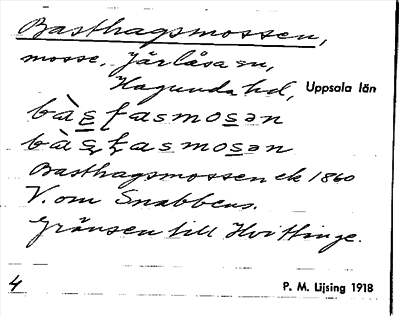 Basthagsmossen,
mosse, Järlåsa sn,
Hagunda hd, Uppsala län
Basthagsmossen ek 1860
V. om Snabbens.
Gränsen till Hvittinge.
4
P. M. Lijsing 1918